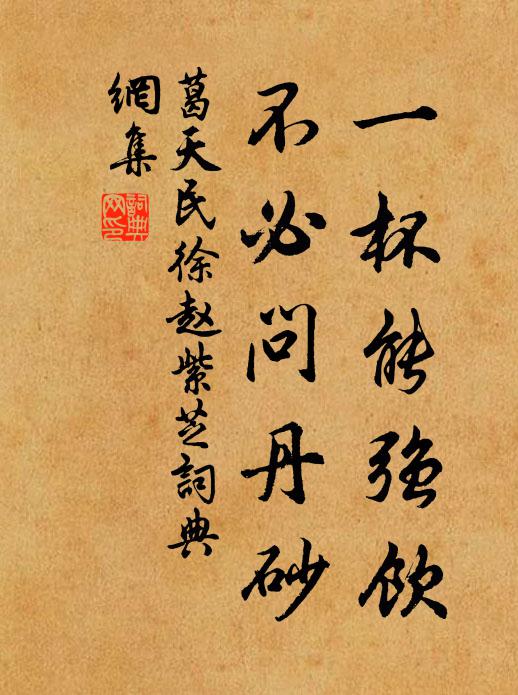 一杯能強飲
不必問丹砂
葛天民徐赵紫芝詞典
網集
詞典
网印